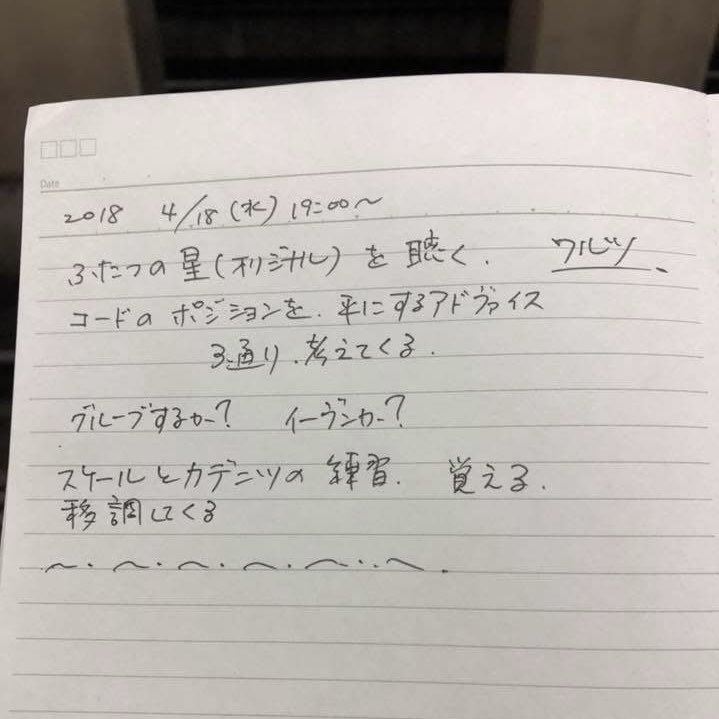 Date
2018 4/18(水) 19:00〜
ふたつの星(オリジナル)を聴く. ワルツ
コードのポジションを.平にするアドヴァイス
3通り.考えてくる.
グルーブするか? イーブンか?
スケールとカデンツの練習. 覚える.
移調してくる
〜・〜・〜・〜・〜・・〜.